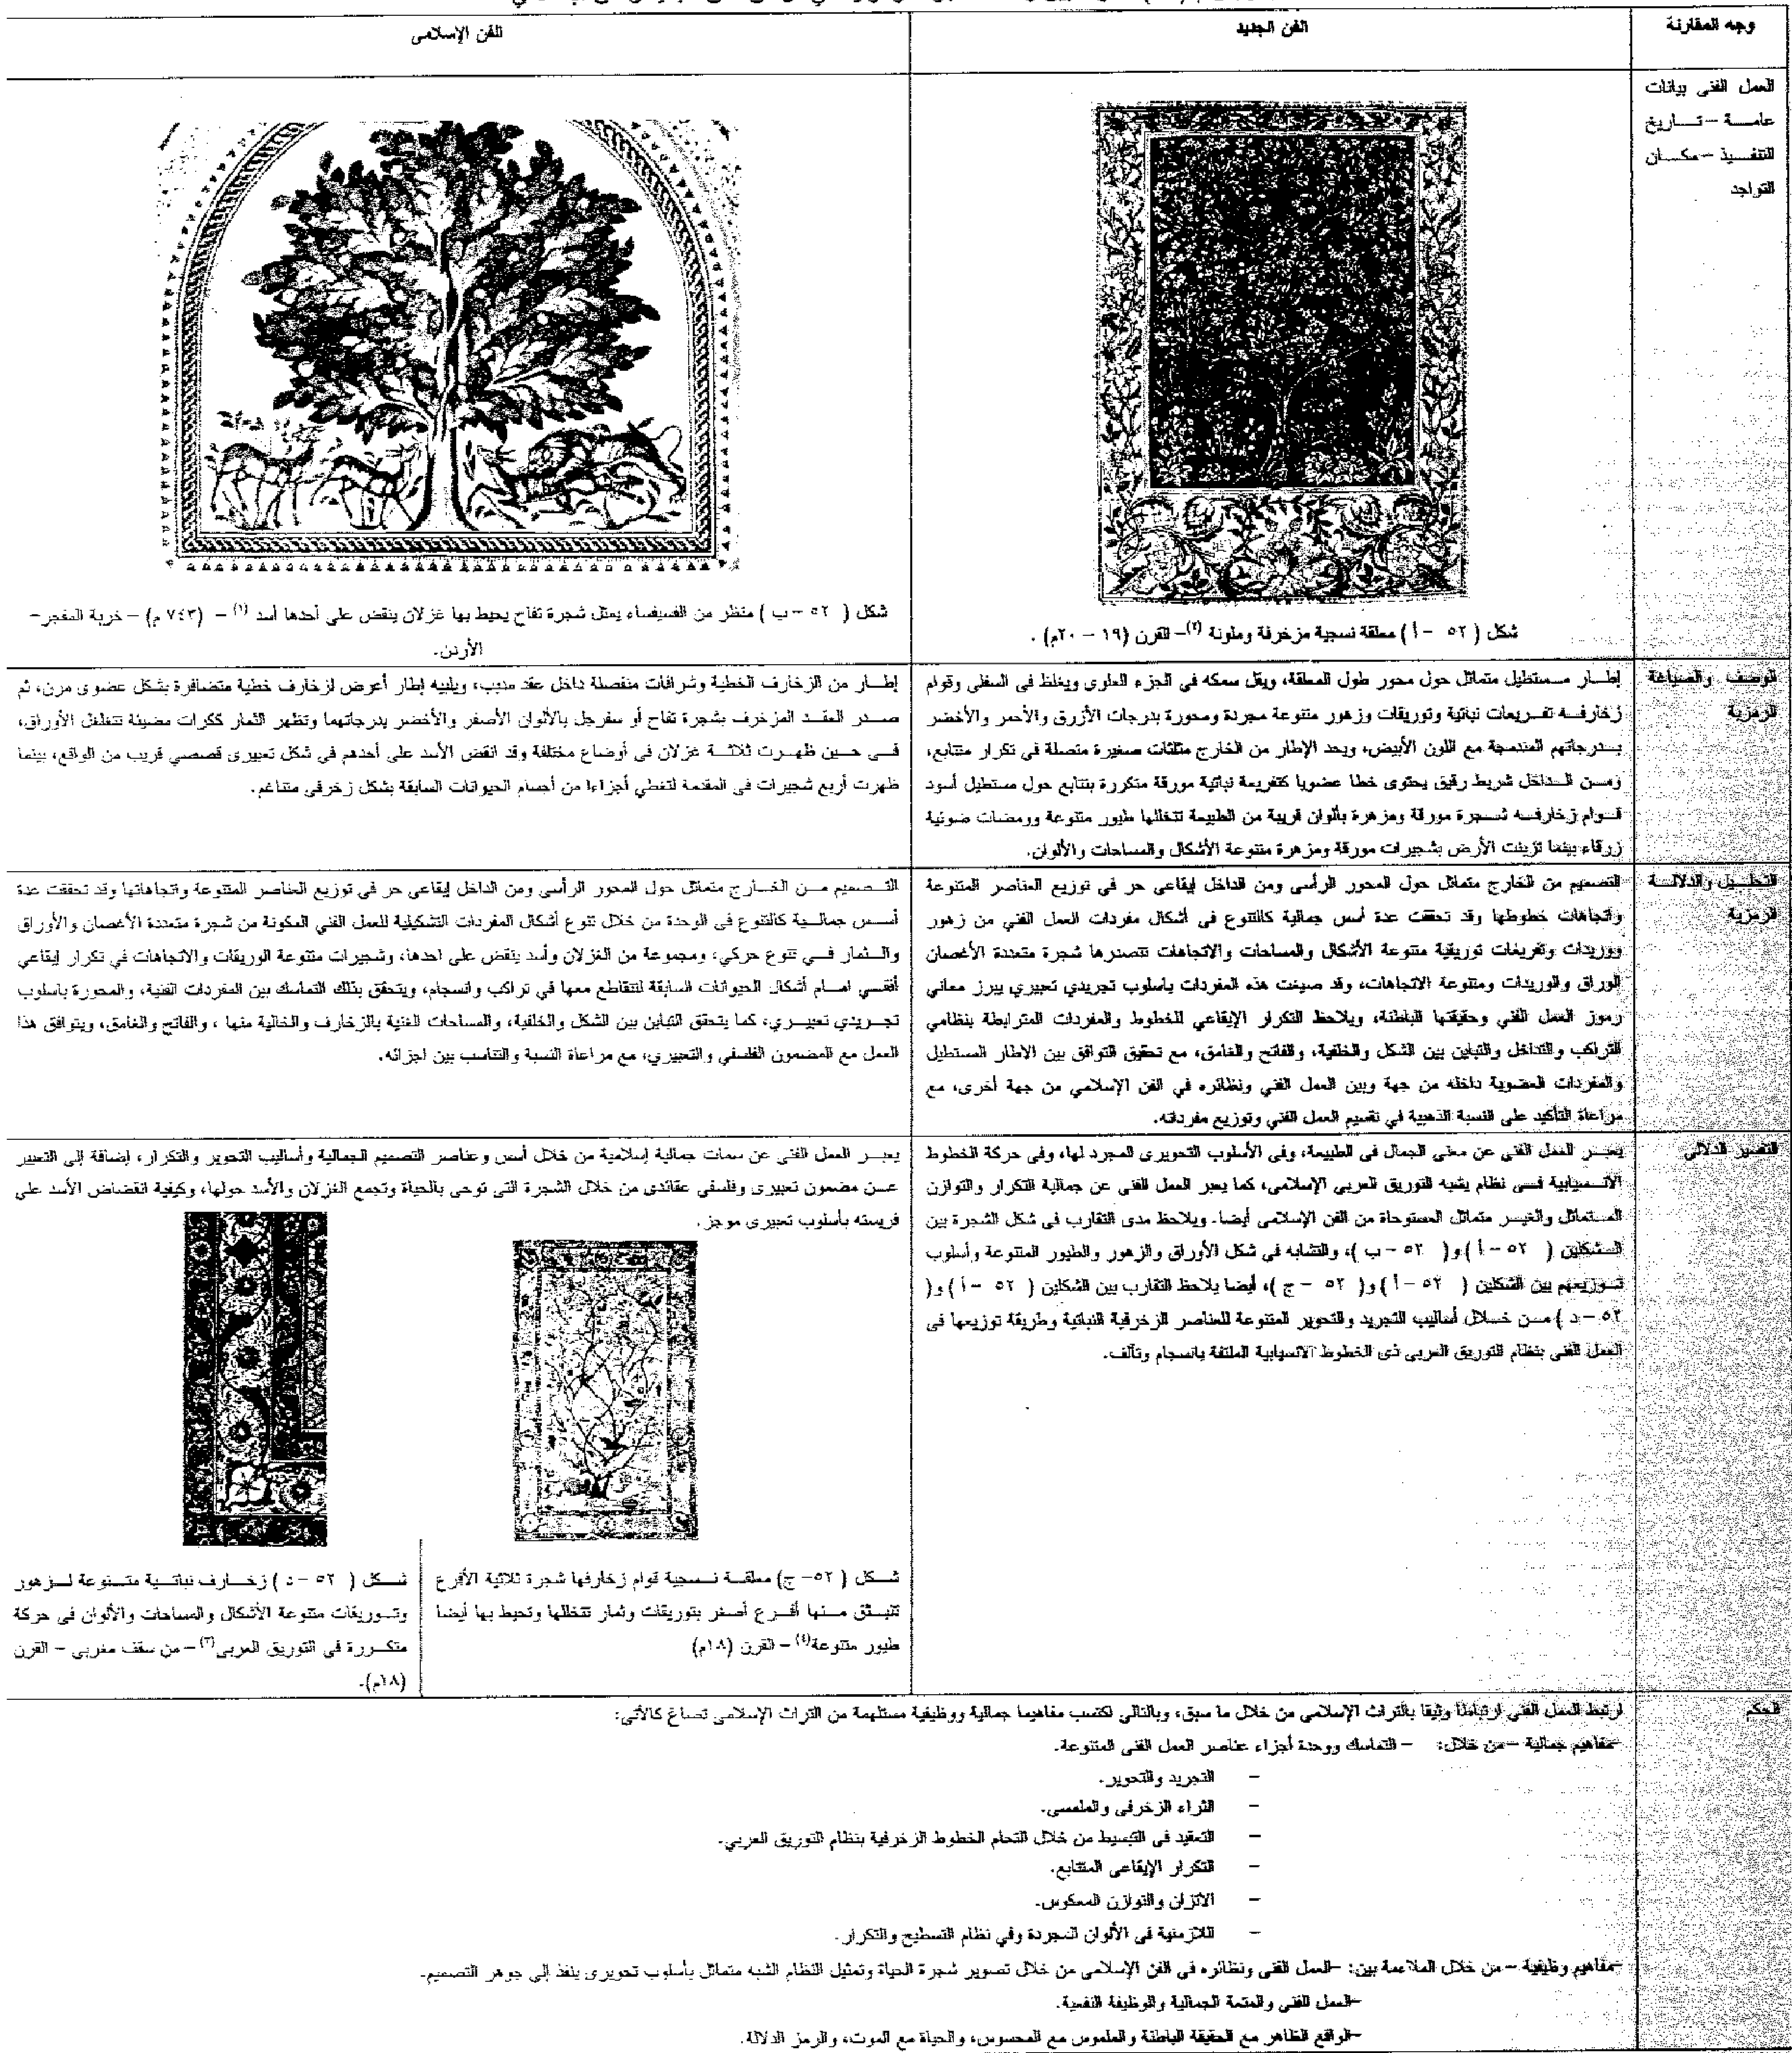 وجه المقارنة
الفن الجديد
الفن الإسلامى
العمل الفنى بيانات
عامة – تاريخ
التنفيذ – مكان
التواجد
شكل ( ٥٢ – أ ) معلقة نسجية مزخرفة وملونة (٢)– القرن (١٩ – ٢٠م) .
شكل ( ٥٢ – ب ) منظر من الفسيفساء يمثل شجرة تفاح يحيط بها غزلان ينقض على أحدها أسد (١) – (٧٤٣ م) – خربة المفجر–
الأردن.
الوصف والصياغة
الرمزية
إطار مستطيل متماثل حول محور طول المعلقة، ويقل سمكه في الجزء العلوى ويغلظ فى السفلى وقوام
زخارفه تفريعات نباتية وتوريقات وزهور متنوعة مجردة ومحورة بدرجات الأزرق والأحمر والأخضر
بدرجاتهم المندمجة مع اللون الأبيض، ويحد الإطار من الخارج مثلثات صغيرة متصلة في تكرار متتابع،
ومن الداخل شريط رقيق يحتوى خطا عضويا كتفريعة نباتية مورقة متكررة بتتابع حول مستطيل أسود
قوام زخارفه شجرة مورقة ومزهرة بألوان قريبة من الطبيعة تتخللها طيور متنوعة وومضات ضوئية
زرقاء بينما تزينت الأرض بشجيرات مورقة ومزهرة متنوعة الأشكال والمساحات والألوان.
إطار من الزخارف الخطية وشرافات منفصلة داخل عقد مدبب، ويليه إطار أعرض لزخارف خطية متضافرة بشكل عضوى مرن، ثم
صدر العقد المزخرف بشجرة تفاح أو سفرجل بالألوان الأصفر والأخضر بدرجاتهما وتظهر الثمار ككرات مضيئة تتغلغل الأوراق،
فى حين ظهرت ثلاثة غزلان فى أوضاع مختلفة وقد انقض الأسد على أحدهم في شكل تعبيرى قصصي قريب من الواقع، بينما
ظهرت أربع شجيرات فى المقدمة لتغطي أجزاءا من أجسام الحيوانات السابقة بشكل زخرفى متناغم.
التحليل والدلالة
الرمزية
التصميم من الخارج متماثل حول المحور الرأسى ومن الداخل إيقاعي حر فى توزيع العناصر المتنوعة
واتجاهات خطوطها وقد تحققت عدة أسس جمالية كالتنوع فى أشكال مفردات العمل الفني من زهور
ووريدات وتفريغات توريقية متنوعة الأشكال والمساحات والاتجاهات تتصدرها شجرة متعددة الأغصان
الوراق والوريدات ومتنوعة الاتجاهات، وقد صيغت هذه المفردات بأسلوب تجريدي تعبيري يبرز معاني
رموز العمل الفني وحقيقتها الباطنة، ويلاحظ التكرار الإيقاعي للخطوط والمفردات المترابطة بنظامي
التراكب والتداخل والتباين بين الشكل والخلفية، والفاتح والغامق، مع تحقيق التوافق بين الاطار المستطيل
والمفردات العضوية داخله من جهة وبين العمل الفني ونظائره في الفن الإسلامي من جهة أخرى، مع
مراعاة التأكيد على النسبة الذهبية في تقسيم العمل الفني وتوزيع مفرداته.
التصميم من الخارج متماثل حول المحور الرأسى ومن الداخل إيقاعي حر فى توزيع العناصر المتنوعة واتجاهاتها وقد تحققت عدة
أسس جمالية كالتنوع فى الوحدة من خلال تنوع أشكال المفردات التشكيلية للعمل الفني المكونة من شجرة متعددة الأغصان والأوراق
والثمار في تنوع حركي، ومجموعة من الغزلان وأسد ينقض على احدها، وشجيرات متنوعة الوريقات والاتجاهات في تكرار إيقاعي
أفقي امام أشكال الحيوانات السابقة لتتقاطع معها في تراكب وانسجام، ويتحقق بذلك التماسك بين المفردات الفنية، والمحورة باسلوب
تجريدي تعبيري، كما يتحقق التباين بين الشكل والخلفية، والمساحات الغنية بالزخارف والخالية منها ، والفاتح والغامق، ويتوافق هذا
العمل مع المضمون الفلسفي والتعبيري، مع مراعاة النسبة والتناسب بين اجزائه.
التفسير الدلالى
يعبر العمل الفنى عن معنى الجمال فى الطبيعة، وفى الأسلوب التحويرى المجرد لها، وفى حركة الخطوط
الانسيابية فى نظام يشبه التوريق العربي الإسلامى، كما يعبر العمل الفنى عن جمالية التكرار والتوازن
المتماثل والغير متماثل المستوحاة من الفن الإسلامى أيضا. ويلاحظ مدى التقارب في شكل الشجرة بين
الشكلين ( ٥٢ – أ ) و( ٥٢ – ب )، والتشابه في شكل الأوراق والزهور والطيور المتنوعة وأسلوب
توزيعهم بين الشكلين ( ٥٢ – أ ) و( ٥٢ – ج )، أيضا يلاحظ التقارب بين الشكلين ( ٥٢ – أ ) و(
٥٢ – د ) من خلال أساليب التجريد والتحوير المتنوعة للعناصر الزخرفية النباتية وطريقة توزيعها فى
العمل الفنى بنظام التوريق العربى ذى الخطوط الانسيابية الملتفة بانسجام وتآلف.
يعبر العمل الفنى عن سمات جمالية إسلامية من خلال أسس وعناصر التصميم الجمالية وأساليب التحوير والتكرار، إضافة إلى التعبير
عن مضمون تعبيرى وفلسفي عقائدى من خلال الشجرة التى توحى بالحياة وتجمع الغزلان والأسد حولها، وكيفية انقضاض الأسد على
فريسته بأسلوب تعبيرى موجز.
شكل ( ٥٢– ج) معلقة نسجية قوام زخارفها شجرة ثلاثية الأفرع
تنبثق منها أفرع أصغر بتوريقات وثمار تتخللها وتحيط بها أيضا
طيور متنوعة(٤) – القرن (١٨م)
شكل ( ٥٢ – د ) زخارف نباتية متنوعة لزهور
وتوريقات متنوعة الأشكال والمساحات والألوان فى حركة
متكررة فى التوريق العربى(٣) – من سقف مغربى – القرن
(١٨م).
الحكم
ارتبط العمل الفنى ارتباطا وثيقا بالتراث الإسلامى من خلال ما سبق، وبالتالى اكتسب مفاهيما جمالية ووظيفية مستلهمة من التراث الإسلامى تصاغ كالآتي:
–مفاهيم جمالية –من خلال: – التماسك ووحدة أجزاء عناصر العمل الفنى المتنوعة.
– التجريد والتحوير.
– الثراء الزخرفى والملمسى.
– التعقيد فى التبسيط من خلال التحام الخطوط الزخرفية بنظام التوريق العربي.
– التكرار الإيقاعى المتتابع.
– الاتزان والتوازن المعكوس.
– اللازمنية فى الألوان المجردة وفي نظام التسطيح والتكرار.
–مفاهيم وظيفية – من خلال الملاءمة بين: –العمل الفنى ونظائره فى الفن الإسلامى من خلال تصوير شجرة الحياة وتمثيل النظام الشبه متماثل بأسلوب تحويرى ينفذ إلي جوهر التصميم.
–العمل الفنى والمتعة الجمالية والوظيفة النفسية.
–الواقع الظاهر مع الحقيقة الباطنة والملموس مع المحسوس، والحياة مع الموت، والرمز الدلالة.